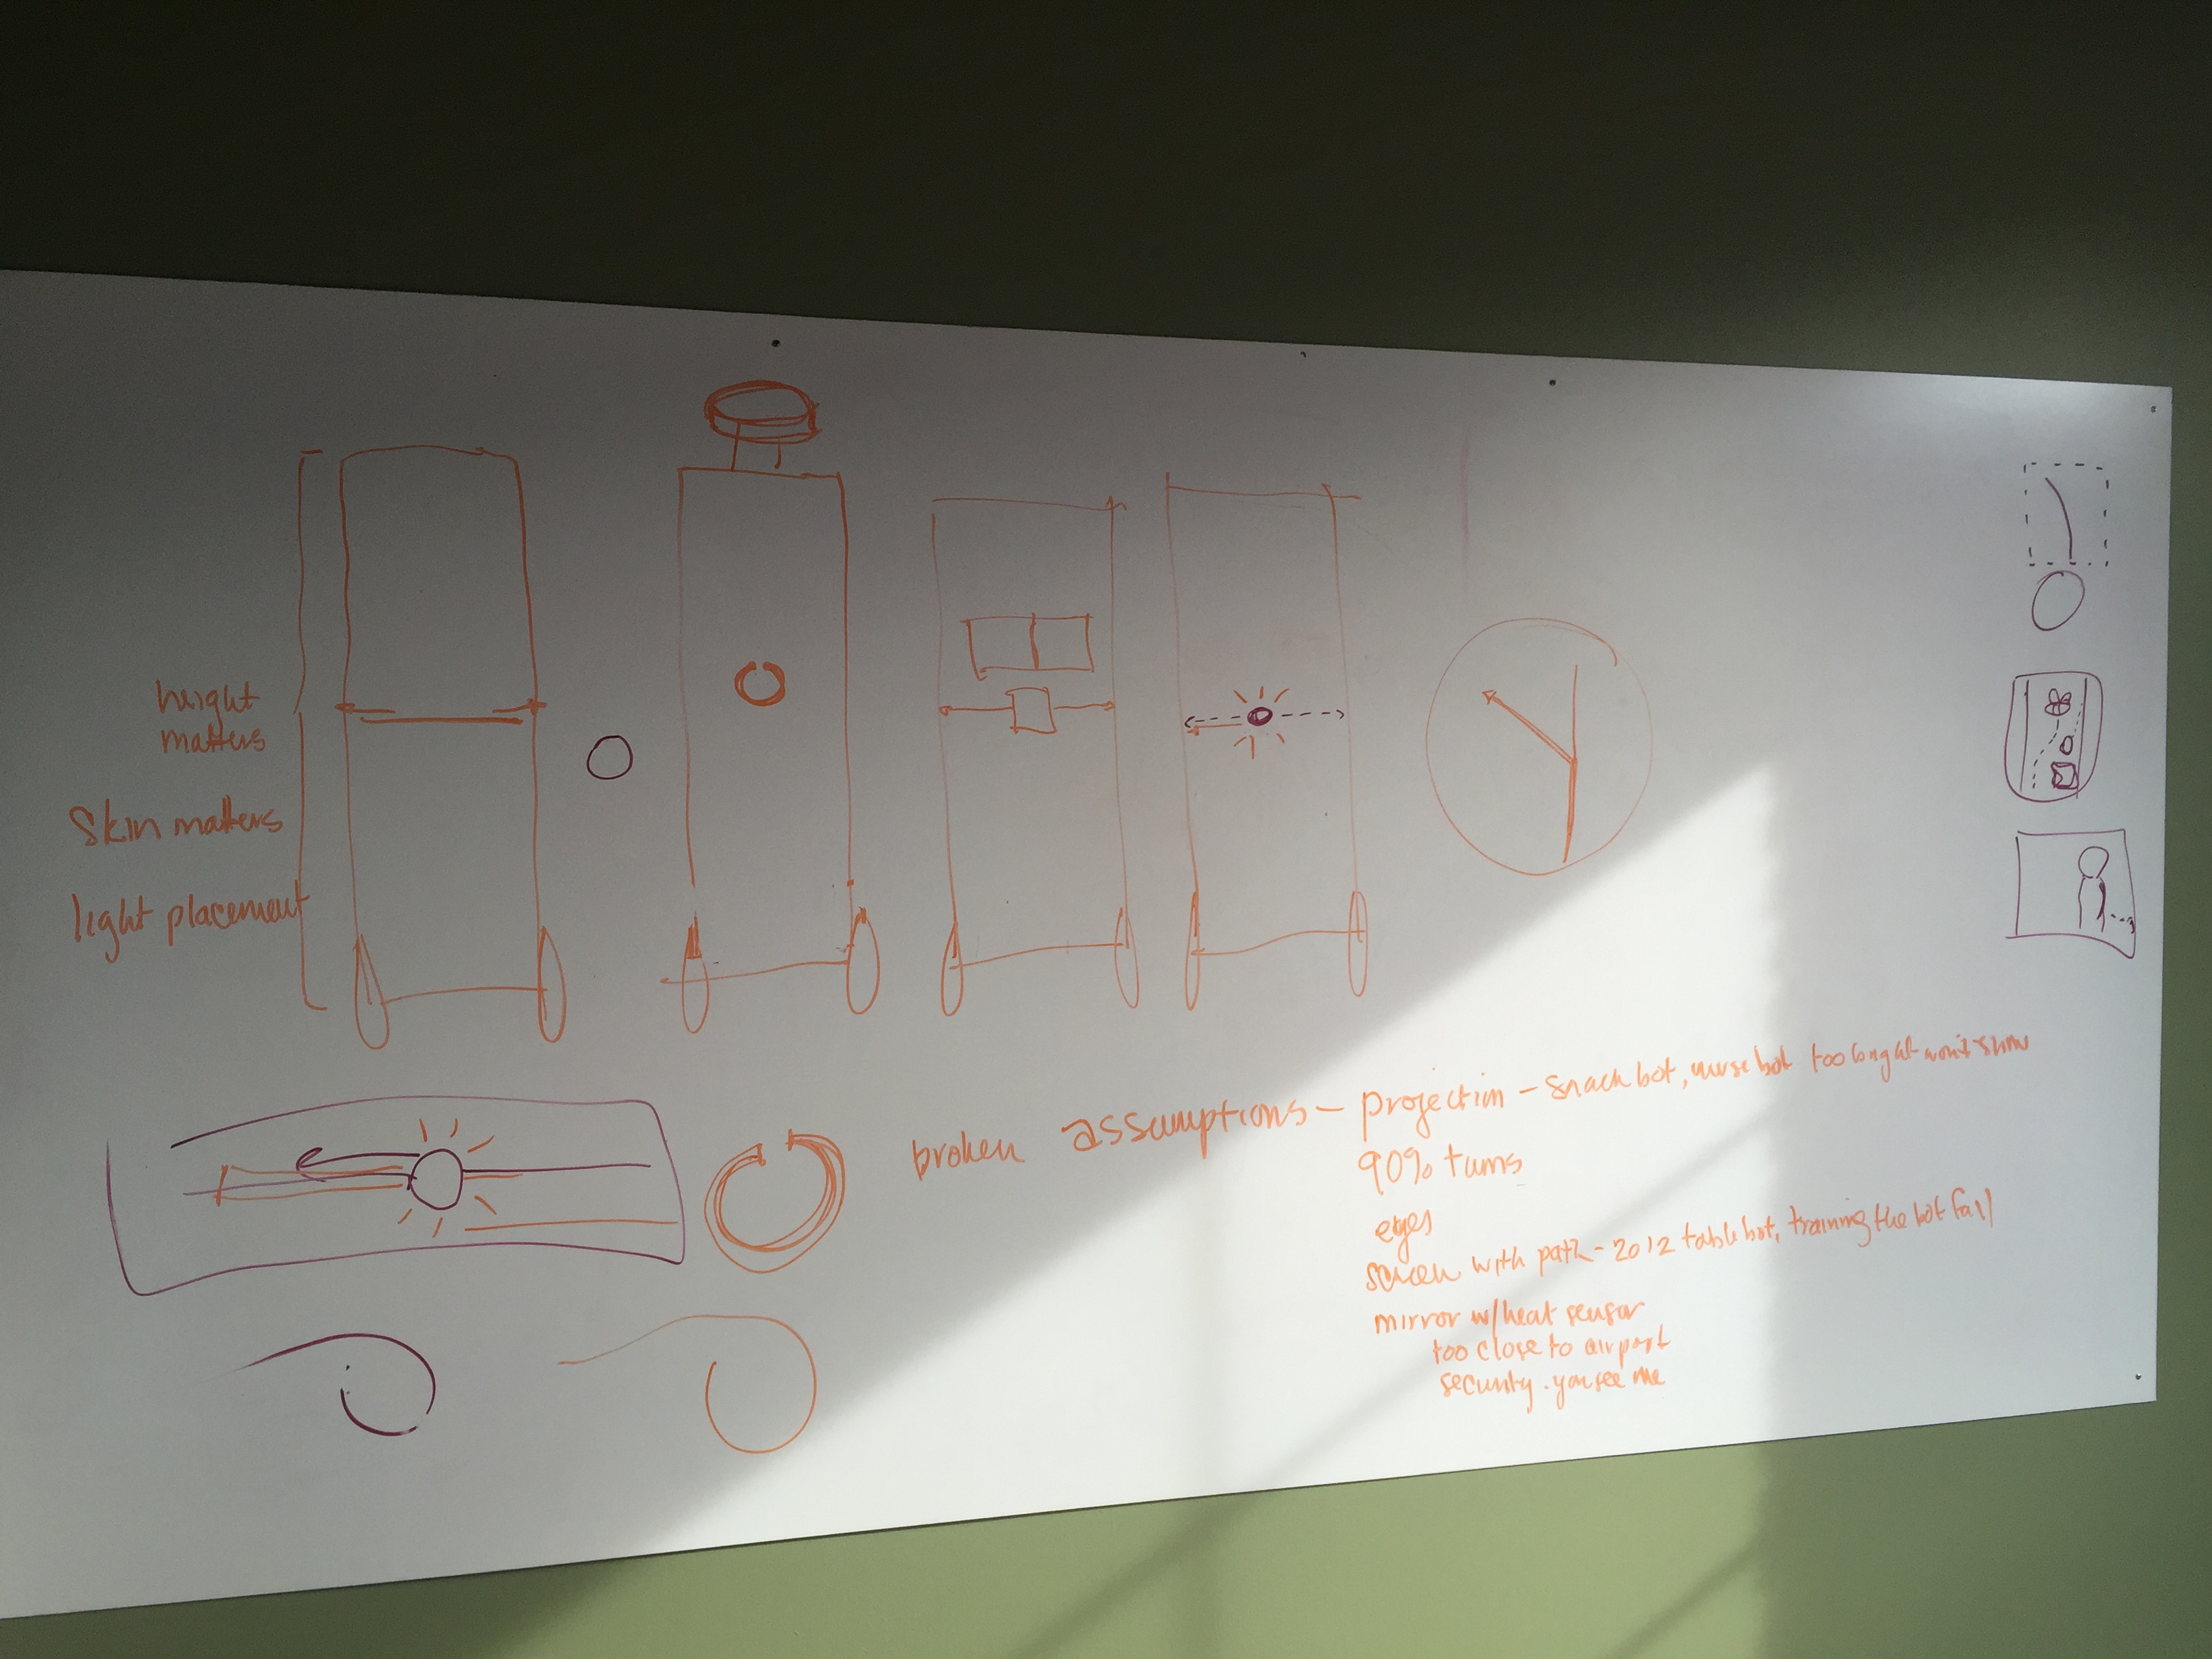 height
matters
Skin matters
light placement
broken assumptions – projection – snack bot, nurse bot too long at won't show
90% turns
eyes
screen with path – 2012 table bot, training the bot fall
mirror w/heat sensor
too close to airport
security. you see me